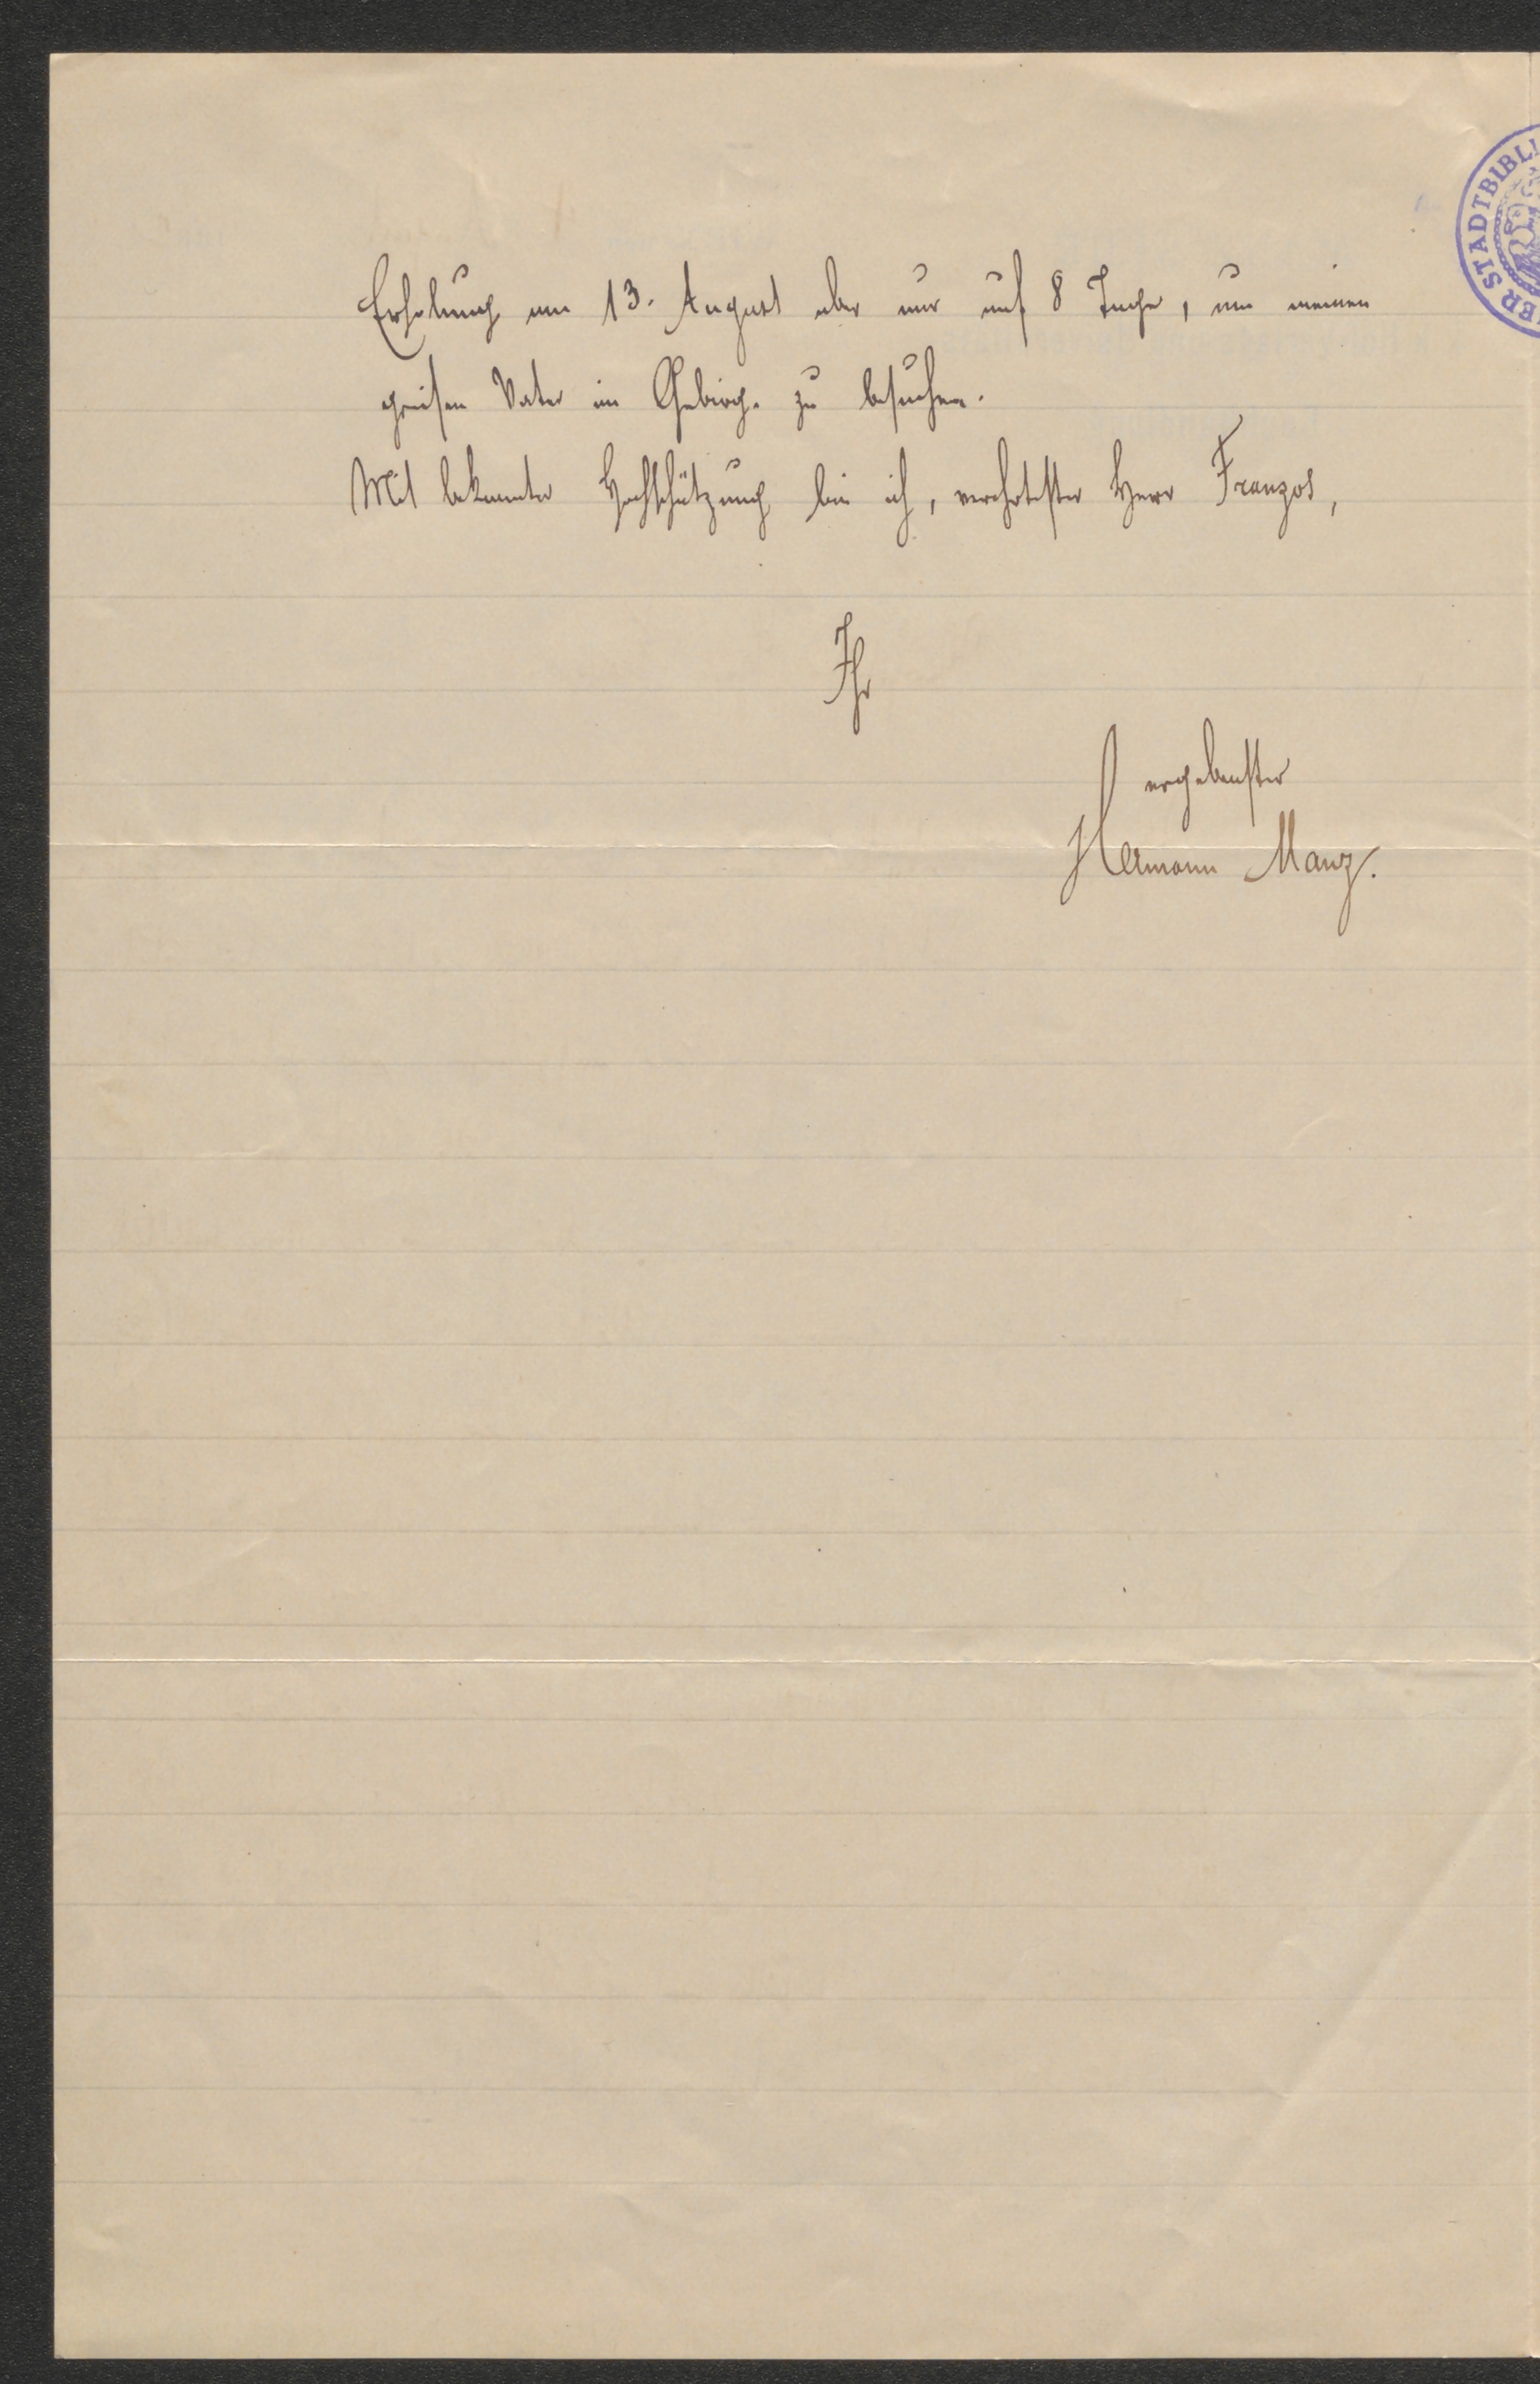 Erholung am 13. August aber nur auf 8 Tage, um meinen
greisen Vater im Gebirge zu besuchen.
Mit bekannter Hochschätzung bin ich, verehrtester Herr Franzos,
Ihr
ergebenster
Hermann Manz.
ER STADTBIBLI